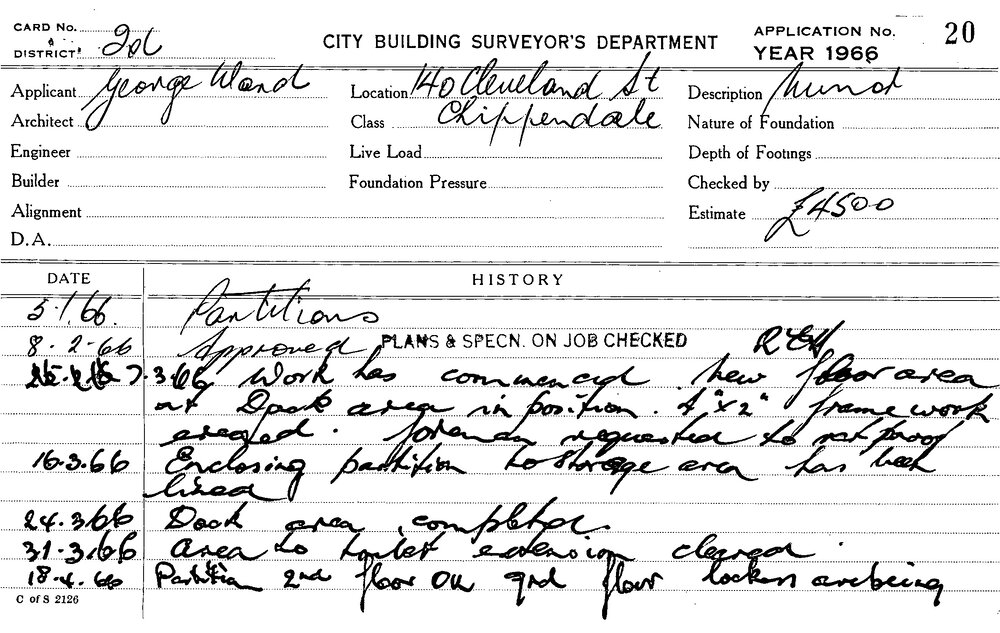 CARD No.
& DISTRICT: 2d
CITY BUILDING SURVEYOR'S DEPARTMENT
APPLICATION No. 20
YEAR 1966
Applicant George Ward Location 140 Cleveland St Description
Architect Class Chippendale Nature of Foundation
Engineer Live Load Depth of Footings
Builder Foundation Pressure Checked by
Alignment Estimate £4500
D.A.
DATE HISTORY
5.1.66. Partitions
8.2.66 Approved PLANS & SPECN. ON JOB CHECKED
7.3.66 Work has commenced. New floor area
at Dock area in position. 4"x2" frame work
erected. Foreman requested to rat proof
16.3.66 Enclosing partition to storage area has been
lined
24.3.66 Dock area completed.
31.3.66 Area to toilet extension cleared.
18.4.66 Partition 2nd floor OK grd floor lockers are being
C of S 2126